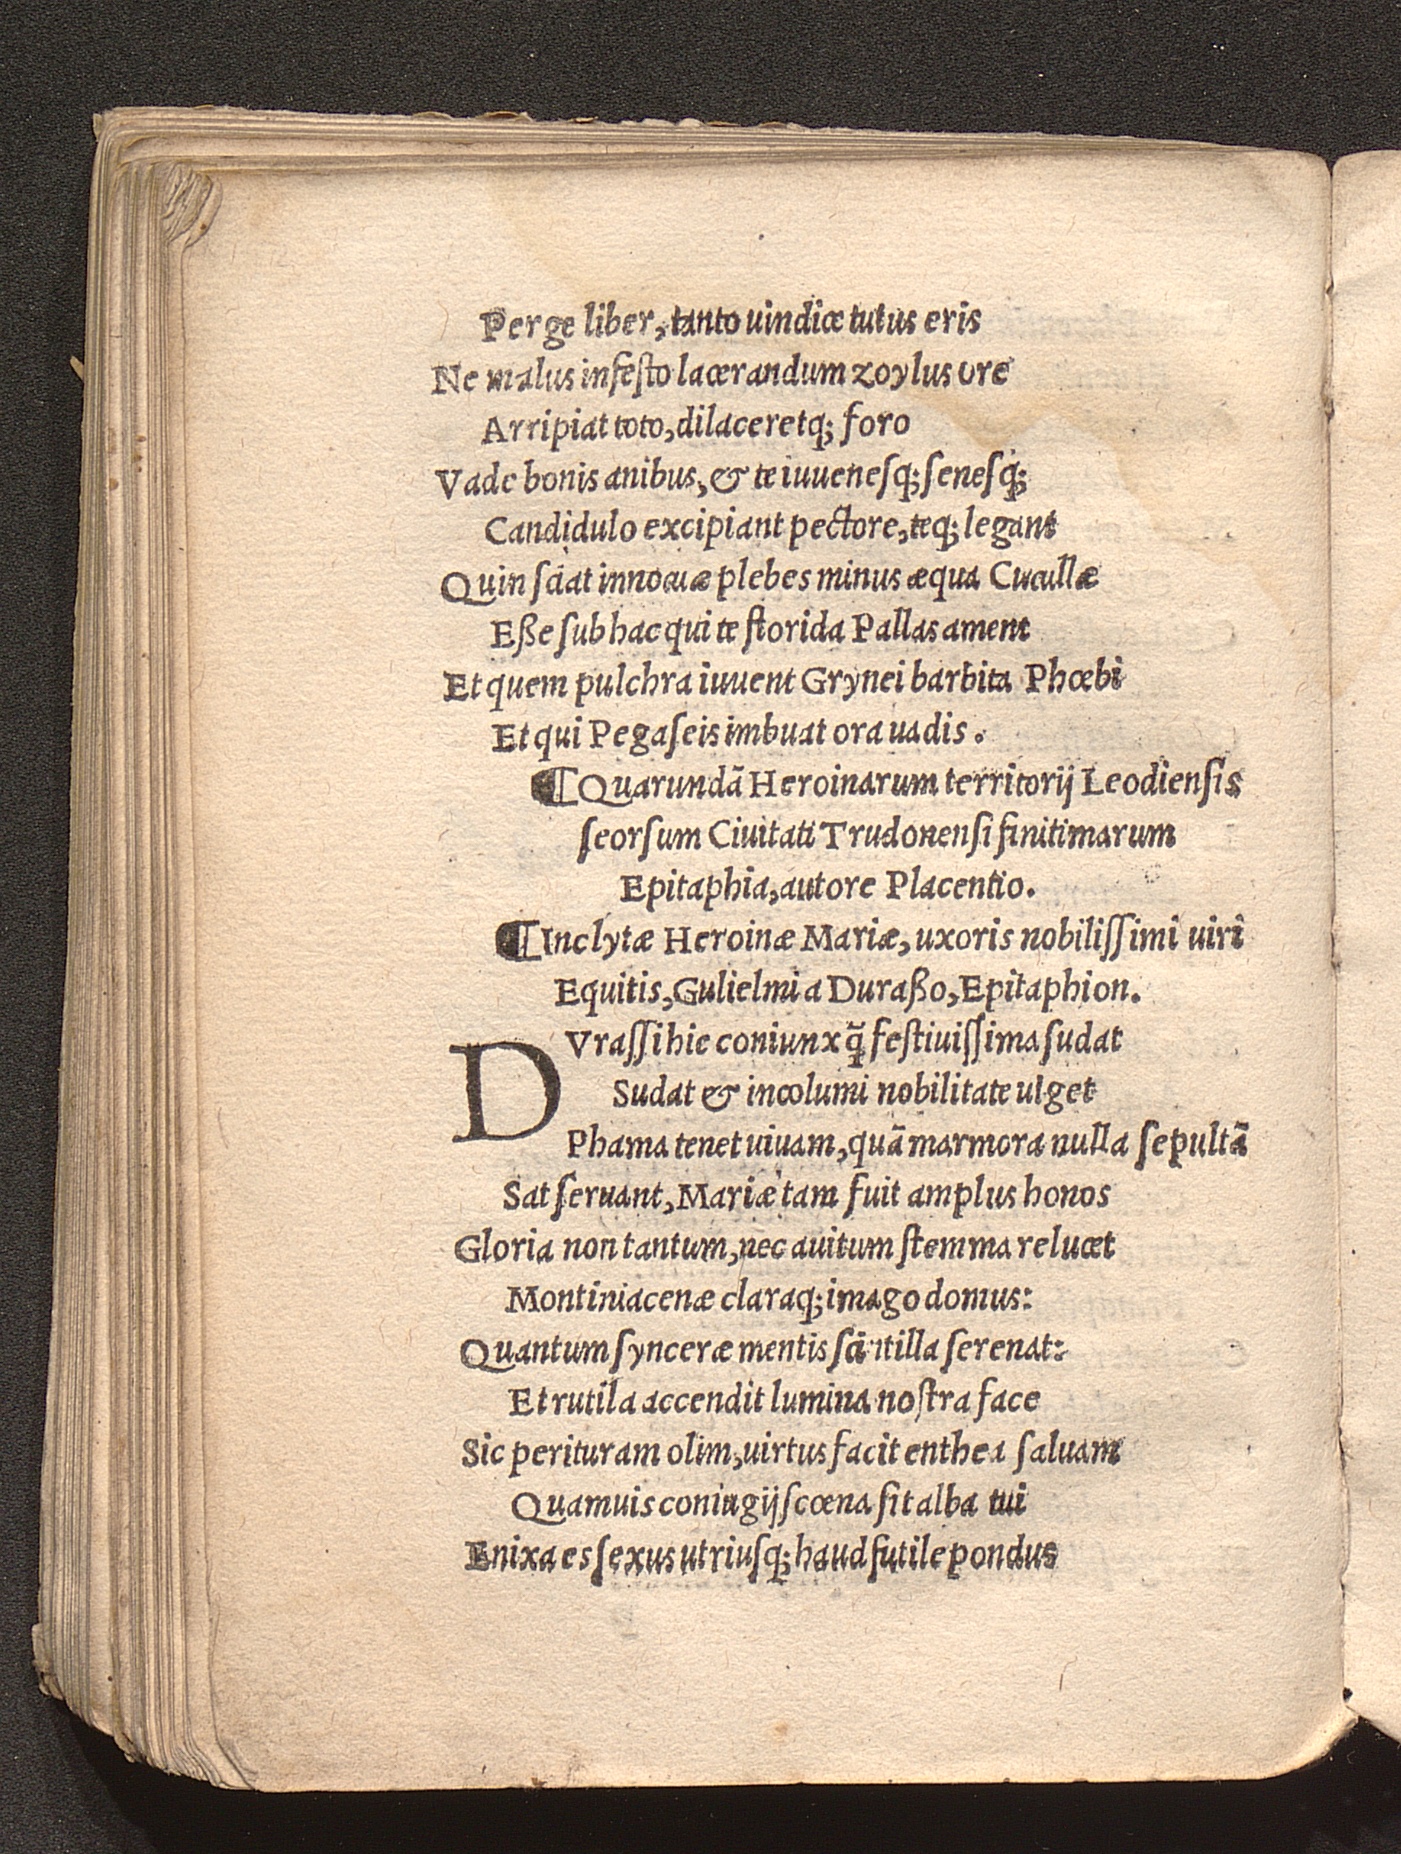 Perge liber, tanto uindice tutus eris
Ne malus infeſto lacerandum zoylus ore
Arripiat toto, dilaceretq; foro
Vade bonis auibus, & te iuueneſq; ſeneſq́;
Candidulo excipiant pectore, teq; legant
Quin ſciat innocuæ plebes minus æqua Cucullæ
Eße ſub hac qui te florida Pallas ament
Et quem pulchra iuuent Grynei barbita Phœbi
Et qui Pegaſeis imbuat ora uadis.
¶ Quarundã Heroinarum territorij Leodienſis
ſeorſum Ciuitati Trudonenſi finitimarum
Epitaphia, autore Placentio.
¶ Inclytæ Heroinæ Mariæ, uxoris nobiliſſimi uiri
Equitis, Gulielmi a Duraßo, Epitaphion.
DVraſſi hic coniunx q̃ feſtiuiſſima ſudat
Sudat & incolumi nobilitate uiget
Phama tenet uiuam, quã marmora nulla ſepultã
Sat ſeruant, Mariæ tam fuit amplus honos
Gloria non tantum, nec auitum ſtemma relucet
Montiniacenæ claraq; imago domus:
Quantum ſynceræ mentis ſcintilla ſerenat:
Et rutila accendit lumina noſtra face
Sic perituram olim, uirtus facit enthea ſaluam
Quamuis coniugij ſcœna ſit alba tui
Enixa es ſexus utriuſq; haud futile pondus